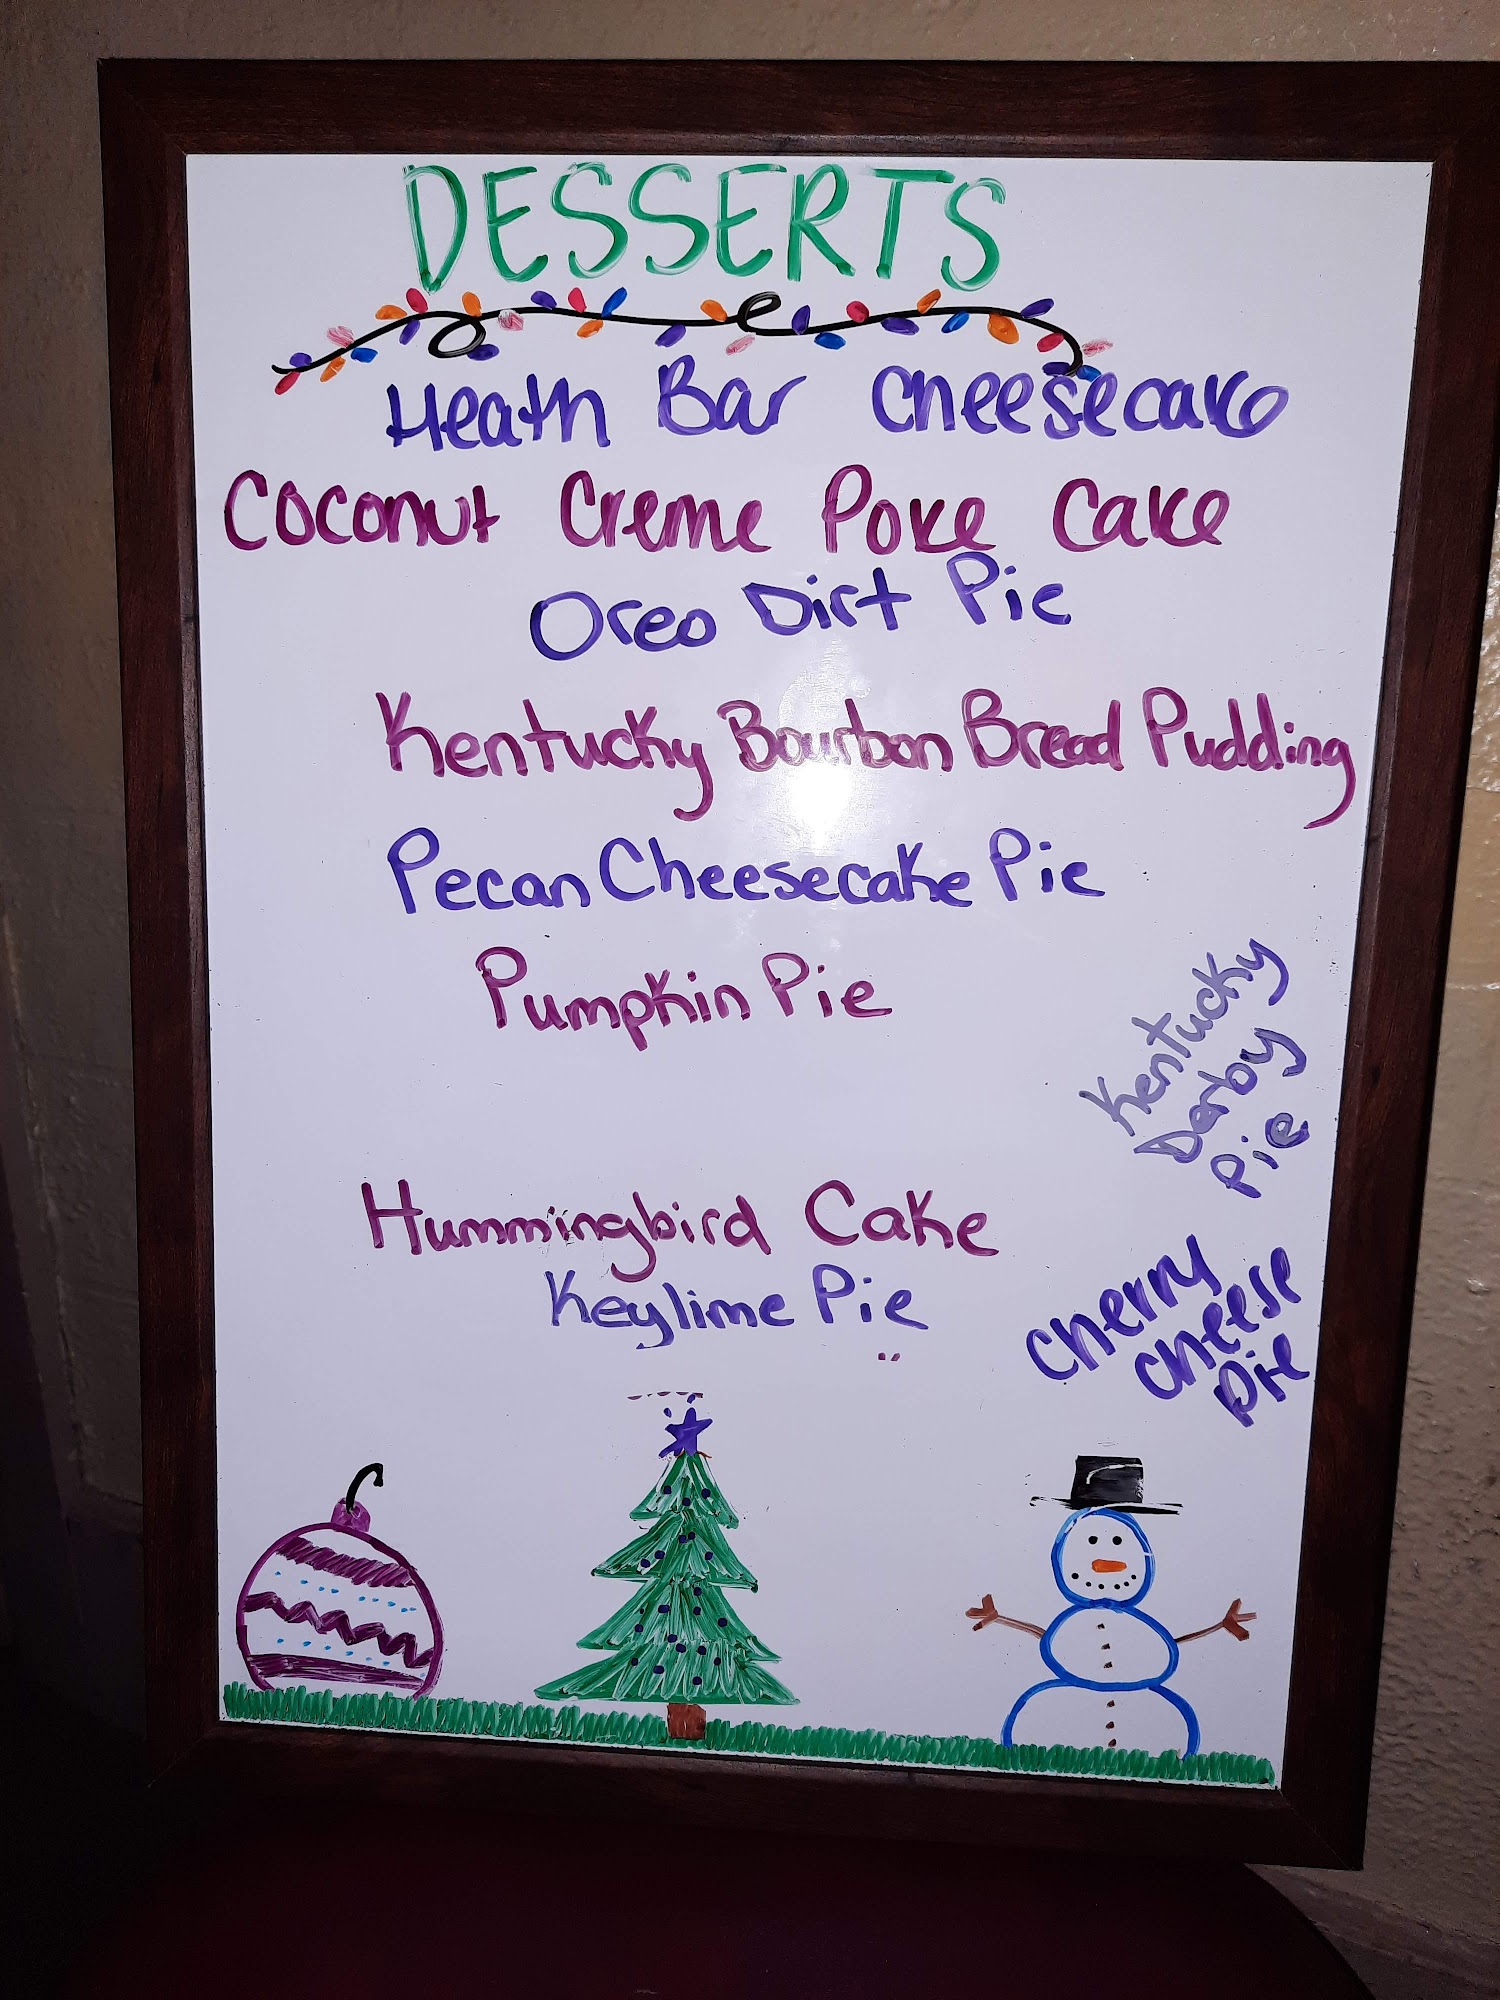 DESSERTS
Heath Bar Cheesecake
Coconut Creme Poke Cake
Oreo Dirt Pie
Kentucky Bourbon Bread Pudding
Pecan Cheesecake Pie
Pumpkin Pie
Kentucky
Derby
Pie
Hummingbird Cake
Keylime Pie
Cherry
Cheese
Pie